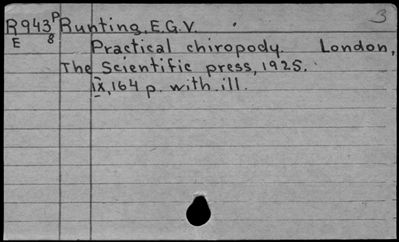 R943 P Runting, E.G.V. 3
E 8 Practical chiropody. London,
The Scientific press, 1925.
IX, 164 p. with ill.